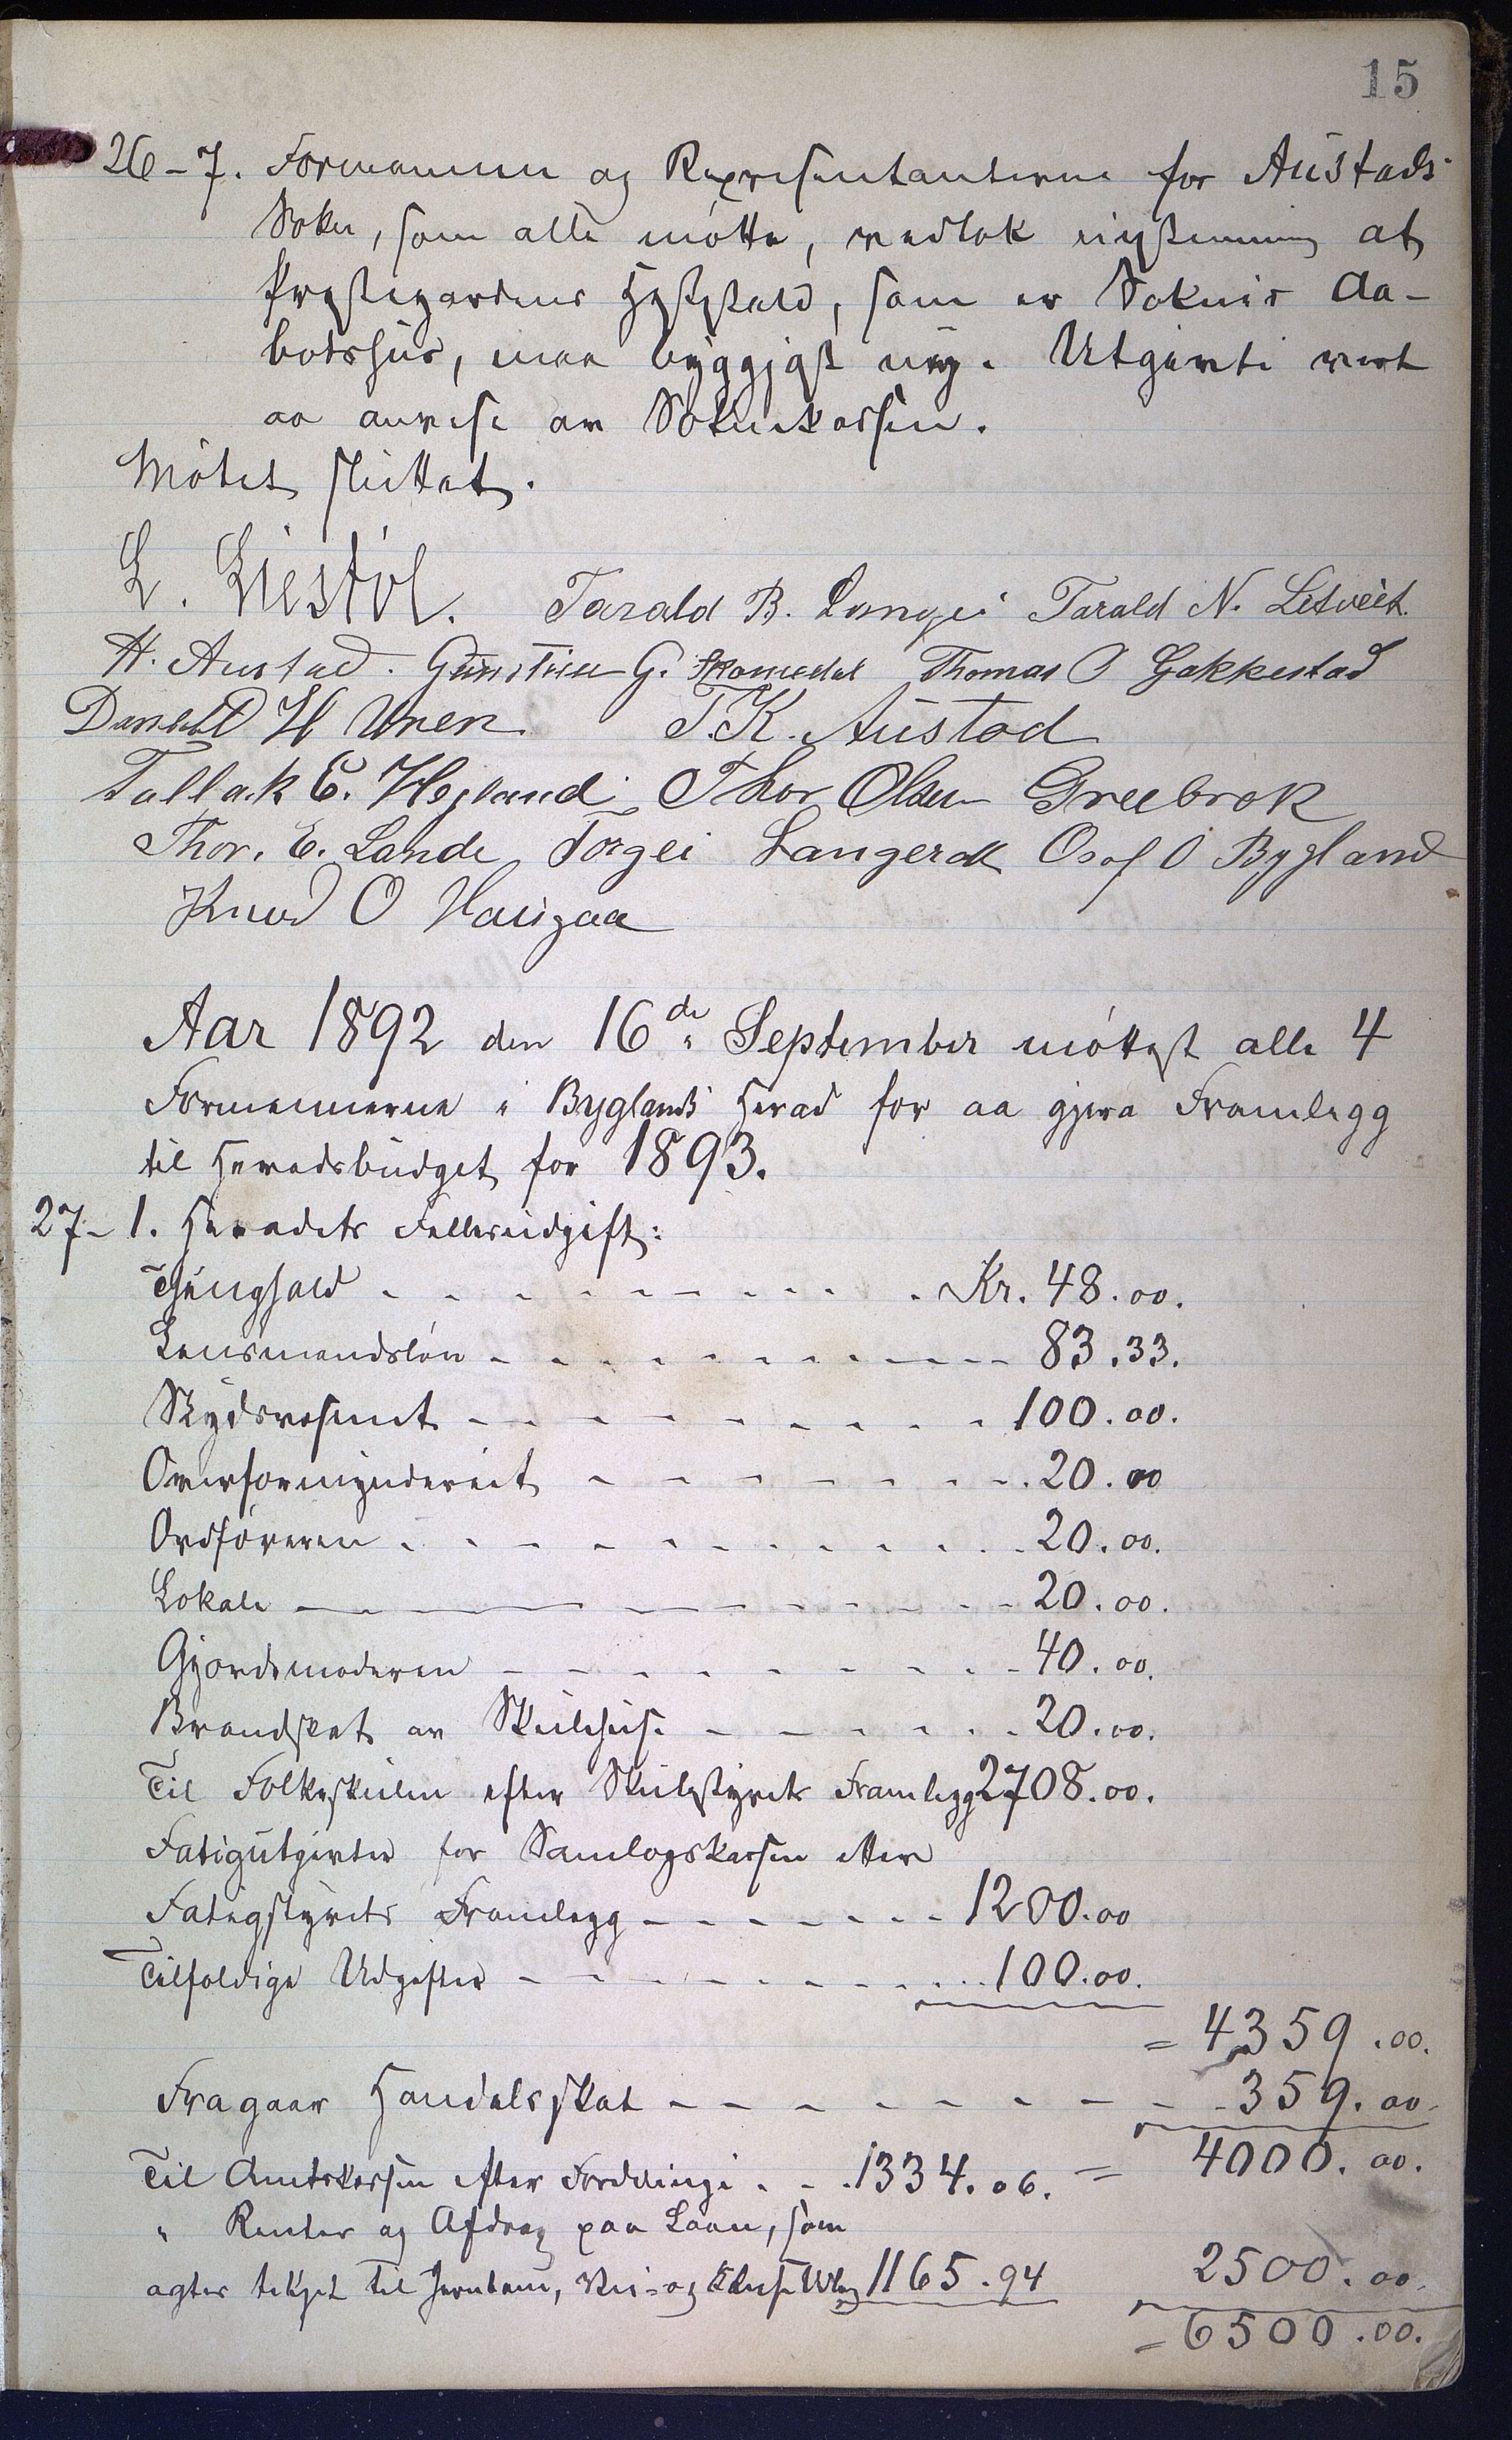 15
26-7. Formennene og Representanterne for Austads
Sokn, som alle møtte, vedtok einstemmig at
Prestegardens Heststald, som er Soknis Aa-
botshus, maa byggjast uy. Utgivti vert
aa anvise av Soknekassen.
Møtet sluttat.
L. Liestøl. Tarald B. Langei Tarald N. Litveit.
H. Austad. Gunstein G. Skomedal Thomas O Gakkestad
Daniel H Uren T. K. Austad
Tallak E. Hegland Thor Olsen Greibrok
Thor. E. Lande Torgei Langerak Osof O Bygland
Knud O Haugaa
Aar 1892 den 16de September møttest alle 4
Formennerne i Byglands Herad for aa gjera Framlegg
til Heradsbudget for 1893.
27- 1. Heradets Fellesudgift:
Thinghald - - - Kr. 48.00.
Lensmandsløn - - - 83.33.
Skydsvesenet - - - 100.00.
Overformynderiet - - - 20.00
Ordføreren - - - 20.00.
Lokale - - - 20.00.
Gjordemoderen - - - 40.00.
Brandskat av Skulehuse - - - 20.00.
Til Folkeskulen efter Skulestyrets Framlegg 2708.00.
Fatigutgivter for Samlagskassen etter
Fatigstyrets Framlegg - - - 1200.00
Tilfældige Udgifter - - - 100.00.
= 4359.00.
Fragaar Handelsskat - - - 359.00.
Til Amtskassen efter Fordelingi - - 1334.06. = 4000.00.
" Renter og Afdrag paa Laan, som
agtes tekjet til Jernbane, Vei- og 1165.94 2500.00.
= 6500.00.